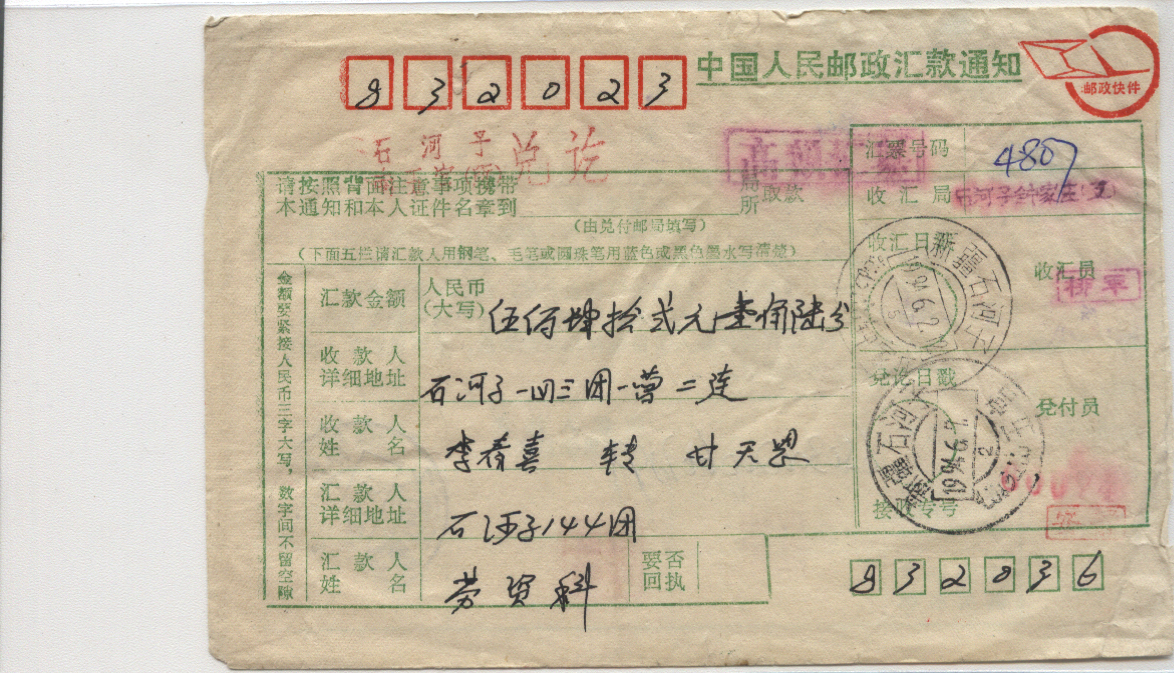 832023
中国人民邮政汇款通知
邮政快件
石河子
兑讫
高额汇票
汇票号码 4807
请按照背面注意事项携带
本通知和本人证件名章到 局所取款
收汇局 石河子钟家庄
(由兑付邮局填写)
收汇日戳
收汇员
(下面五拦请汇款人用钢笔、毛笔或圆珠笔用蓝色或黑色墨水写清楚)
新疆石河子
1994.6.2
金额要紧接人民币三字大写,数字间不留空隙
汇款金额 人民币(大写) 伍佰肆拾弍元壹角陆分
收款人详细地址 石河子一四三团一营二连
兑讫日戳
兑付员
新疆石河子
1994.6.7
收款人姓名 李春喜 转 甘天恩
汇款人详细地址 石河子144团
接收专号
汇款人姓名 劳资科
要否回执
832036